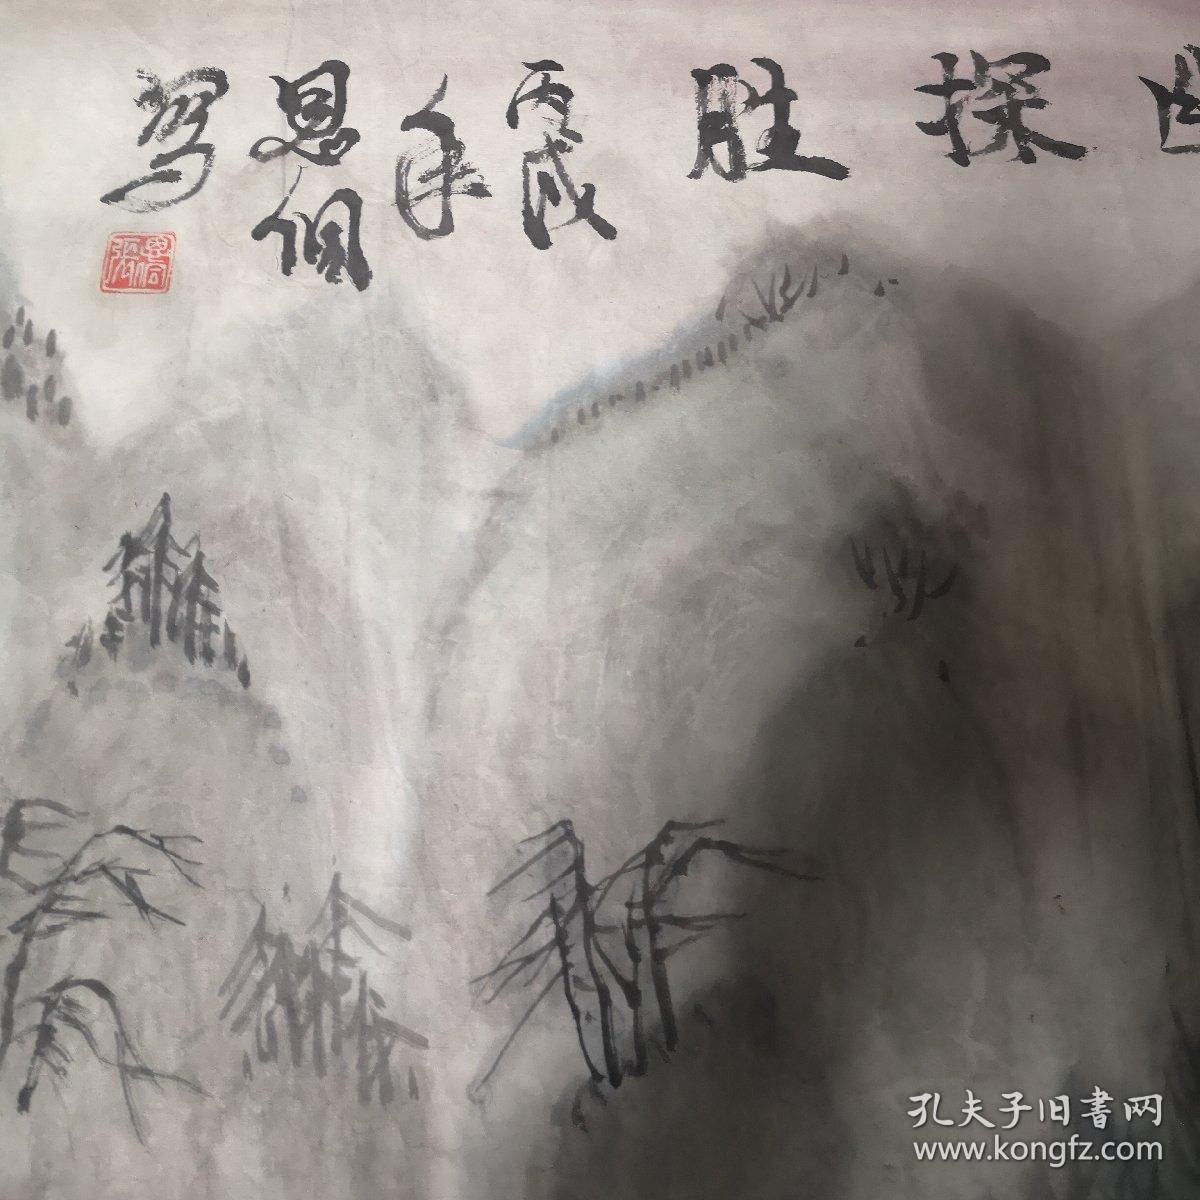 探胜
丙戌
年
恩佩
写
孔夫子旧書网
www.kongfz.com